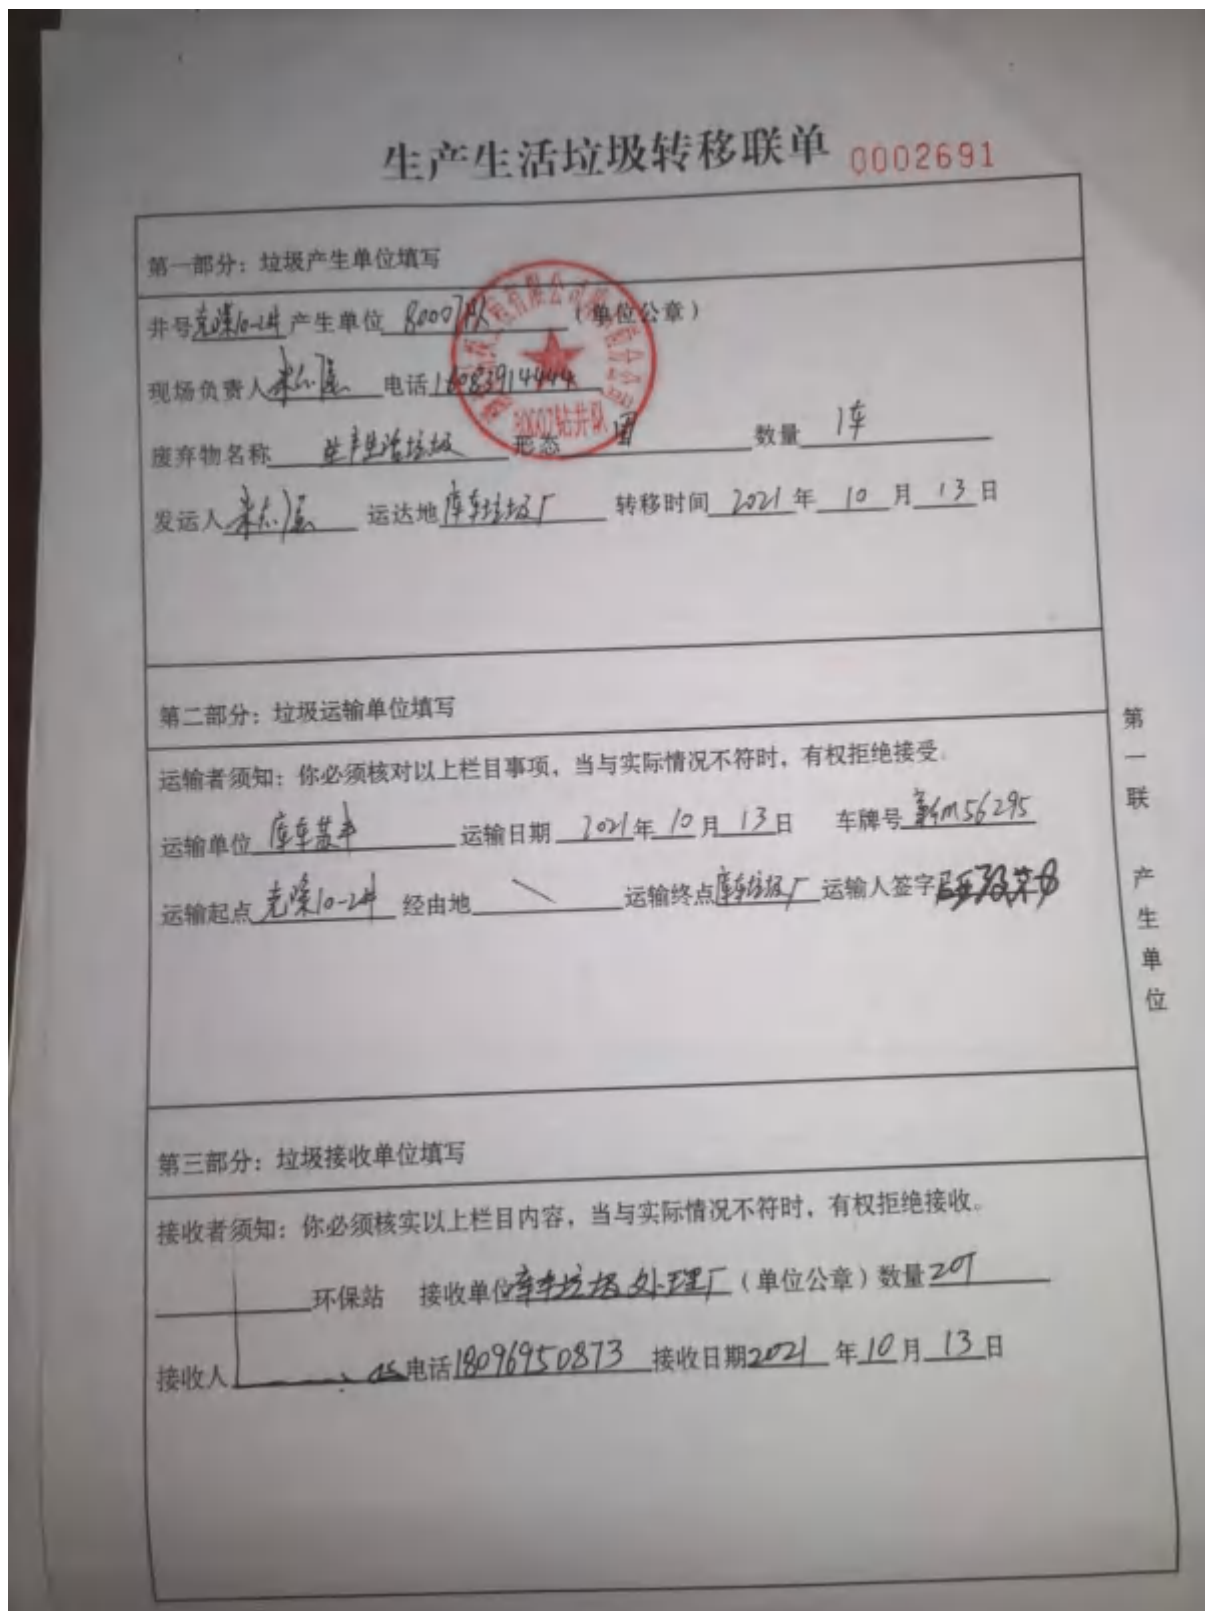 生产生活垃圾转移联单 0002691
第一部分：垃圾产生单位填写
井号克深10-2井 产生单位 80007队 （单位公章）
现场负责人 电话
80007钻井队
废弃物名称 生产生活垃圾 形态 固 数量 1车
发运人 运达地 库车垃圾厂 转移时间 2021 年 10 月 13 日
第二部分：垃圾运输单位填写
运输者须知：你必须核对以上栏目事项，当与实际情况不符时，有权拒绝接受。
运输单位 库车 运输日期 2021 年 10 月 13 日 车牌号 新M56295
运输起点 克深10-2井 经由地 \ 运输终点 库车垃圾厂 运输人签字
第三部分：垃圾接收单位填写
接收者须知：你必须核实以上栏目内容，当与实际情况不符时，有权拒绝接收。
环保站 接收单位 库车垃圾处理厂（单位公章）数量 20T
接收人 电话 18096950873 接收日期 2021 年 10 月 13 日
第一联 产生单位